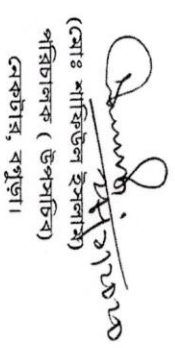 (মোঃ শাফিউল ইসলাম)
পরিচালক (উপসচিব)
নেকটার, বগুড়া।